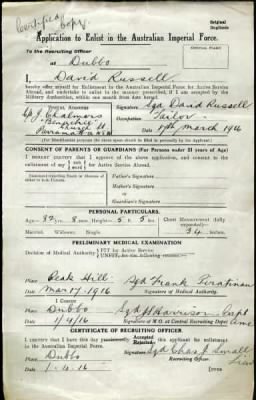 Certified
Copy
Original
Duplicate
Application to Enlist in the Australian Imperial Force.
OFFICIAL STAMP.
To the Recruiting Officer
at Dubbo
I, David Russell
hereby offer myself for Enlistment in the Australian Imperial Force for Active Service
Abroad, and undertake to enlist in the manner prescribed, if I am accepted by the
Military Authorities, within one month from date hereof.
POSTAL ADDRESS
Signature Sgd David Russell
Chalmers
Occupation Tailor
Date 17th March 1916
(For identification purposes the above column should be filled in personally by the applicant)
CONSENT OF PARENTS OR GUARDIANS (For Persons under 21 years of Age)
I HEREBY CERTIFY that I approve of the above application, and consent to the
enlistment of my for Active Service Abroad.
Father's Signature
Mother's Signature
or
Guardian's Signature
PERSONAL PARTICULARS.
Age- 32 yrs. 8 mos. Height- 5 ft. 5 ins.
Chest Measurement (fully expanded)-
34 inches.
Married Widower Single
PRELIMINARY MEDICAL EXAMINATION
Decision of Medical Authority FIT for Active Service
Place Peak Hill
Sgd Frank
Date Mar 17. 1916
Signature of Medical Authority.
I CONCUR
Place Dubbo
Sgd Harrison Capt
Date 1/4/16
Signature of M.O. at Central Recruiting Depot
CERTIFICATE OF RECRUITING OFFICER.
I CERTIFY that I have this day Accepted Rejected the applicant for enlistment in the
Australian Imperial Force.
Place Dubbo
Sgd Chas J Small
Recruiting Officer.
Date 1-4-16